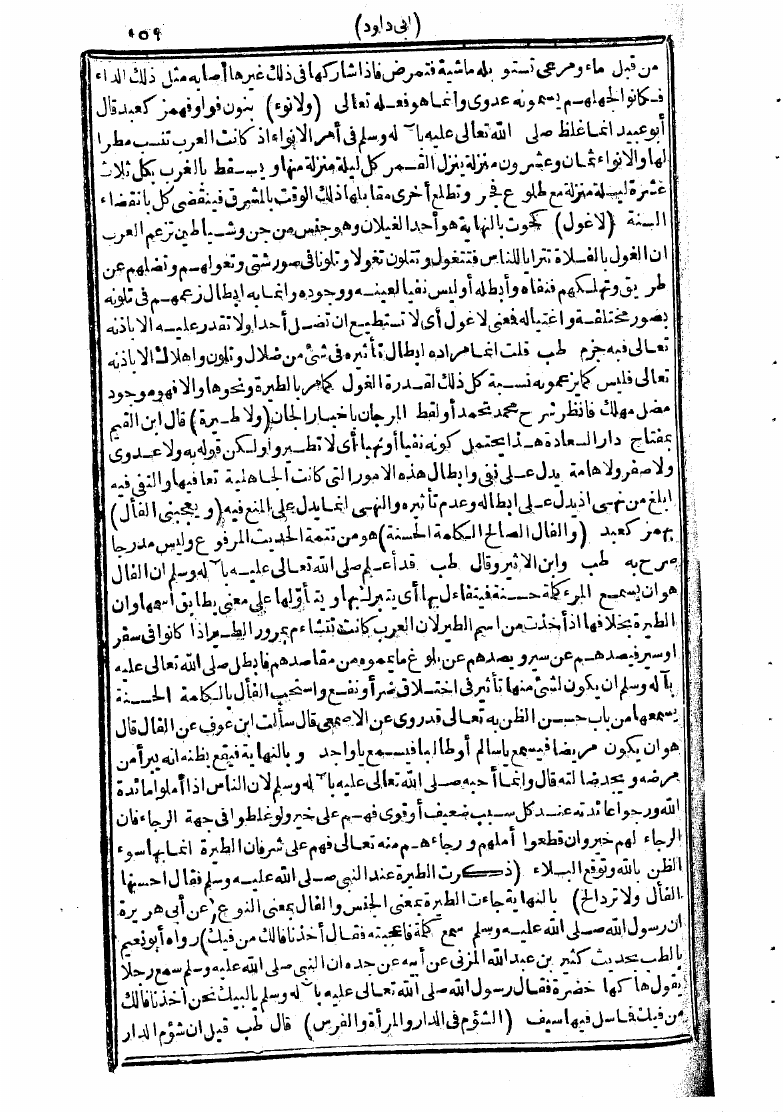 (ابى داود)
١٥٩
من قبل ماء ومرعى تستو بله ماشية فتمرض فاذا شاركها فى ذلك غيرها أصابه مثل ذلك الداء
فكانوا لجهلهم يسمونه عدوى وانما هو فعله تعالى (ولا نوء) بنون فواو فهمز كعبد قال
أبو عبيد انما غلظ صلى الله تعالى عليه بآ له وسلم فى أمر الانواء اذ كانت العرب تنسب مطرا
لها والانواء ثمان وعشرون منزلة ينزل القمر كل ليلة منزلة منها ويسقط بالغرب بكل ثلاث
عشرة ليلة منزلة مع طلوع فجر وتطلع أخرى مقابلها ذلك الوقت بالمشرق فينقضى كل بانقضاء
السنة (لا غول) كحوت بالنهاية هو أحد الغيلان وهو جنس من جن وشياطين تزعم العرب
ان الغول بالفلاة تترايا للناس فتتغول وتتلون تغولا وتلونا فى صور شتى وتغولهم وتضلهم عن
طريق وتهلكهم فنفاه وأبطله أو ليس نفيا لعينه ووجوده وانما به ابطال زعمهم فى تلونه
بصور مختلفة واغتياله فمعنى لا غول أى لا تستطيع ان تضل أحدا ولا تقدر عليه الا باذنه
تعالى فبه جزم طب قلت انما مراده ابطال تأثيره فى شئ من ضلال وتلون واهلاك الا باذنه
تعالى فليس كما يزعمونه نسبة كل ذلك لقدرة الغول كما مر بالطيرة ونحوها والا فهو موجود
مضل مهلك فانظر شرح محمد تحمد أو لقط المرجان باخبار الجان (ولا طيرة) قال ابن القيم
بمفتاح دار السعادة هذا يحتمل كونه نفيا أو نهيا أى لا تطيروا ولكن قوله به ولا عدوى
ولا صفر ولا هامة يدل على نفى وابطال هذه الامور التى كانت الجاهلية تعافيها والنفى فيه
ابلغ من نهى اذ يدل على ابطاله وعدم تأثيره والنهى انما يدل على المنع فيه (ويعجبنى الفأل)
بهمز كعبد (والفال الصالح الكامة الحسنة) هو من تتمة الحديث المرفوع وليس مدرجا
صرح به طب وابن الاثير وقال طب قد أعلم صلى الله تعالى عليه بآ له وسلم ان الفال
هو ان يسمع المرء كلمة حسنة فيتفاءل بها أى يتبرك بها ويتأولها على معنى يطابق اسمها وان
الطيرة بخلافها اذ أخذت من اسم الطير لان العرب كانت تتشاءم بمرور الطير اذا كانوا فى سفر
او سير فيصدهم عن سير ويصدهم عن بلوغ ما يمموه من مقاصدهم فابطل صلى الله تعالى عليه
بآ له وسلم ان يكون لشئ منها تأثير فى اختلاق ضر أو نفع واستحب الفأل بالكامة الحسنة
يسمعها من باب حسن الظن به تعالى قد روى عن الاصمعى قال سألت ابن عوف عن الفال قال
هو ان يكون مريضا فيسمع ياسالم أو طالبا فيسمع ياواجد و بالنهاية فيقع بظنه انه يبرأ من
مرضه ويجد ضا لته قال وانما أحبه صلى الله تعالى عليه بآ له وسلم لان الناس اذا أملوا مائدة
الله ورجوا عائدته عند كل سبب ضعيف أو قوى فهم على خير ولو غلطوا فى جهة الرجاء فان
الرجاء لهم خير وان قطعوا أملهم ورجاءهم منه تعالى فهم على شر فان الطيرة انما بها سوء
الظن بالله وتوقع البلاء (ذكرت الطيرة عند النبى صلى الله عليه وسلم فقال احسنها
الفأل ولا ترد الخ) بالنهاية جاءت الطيرة بمعنى الجنس والفال بمعنى النوع (عن أبى هريرة
ان رسول الله صلى الله عليه وسلم سمع كلمة فاعجبته فقال أخذنا فالك من فيك) رواه أبو نعيم
بالطب بحديث كثير بن عبد الله المزنى عن أبيه عن جده ان النبى صلى الله عليه وسلم سمع رجلا
يقول ها كها خضرة فقال رسول الله صلى الله تعالى عليه بآ له وسلم يالبيك نحن أخذنا فالك
من فيك فما سل فيها سيف (الشؤم فى الدار والمرأة والفرس) قال طب قيل ان شؤم الدار